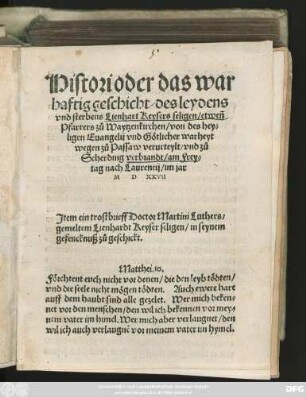 Histori oder das war
haftig geschicht/ des leydens
vnd sterbens Lienhart Keysers seligen/ etweñ
Pfarrers zů Waytzenkirchen/ von des hey-
ligen Euangelii vnd Götlicher warheyt
wegen zů Passaw verurteylt/ vnd zů
Scherding verbrandt/ am Frey-
tag nach Laurentij/ im jar
M D XXVII
Item ein trostbrieff Doctor Martini Luthers/
gemeltem Lienhardt Keyser seligen/ in seynem
gefencknuß zů geschickt.
Matthei. 10.
Förchtent euch nicht vor denen/ die den leyb tödten/
vnd die seele nicht mögen tödten. Auch ewre hare
auff dem haubt sind alle gezelet. Wer mich beken-
net vor den menschen/ den wil ich bekennen vor mey-
nem vater im himel. Wer mich aber verlaugnet/ den
wil ich auch verlaugnẽ vor meinem vater im hymel.